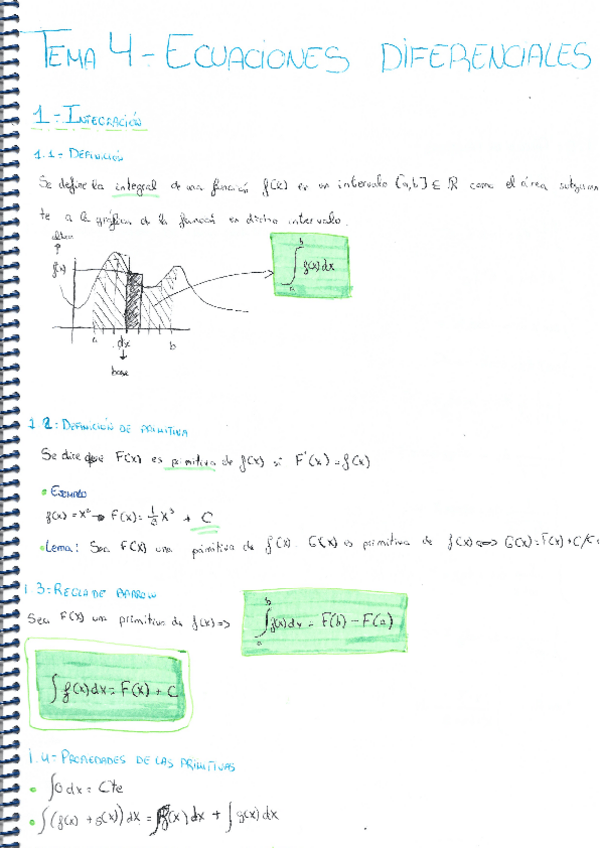 TEMA 4 - ECUACIONES DIFERENCIALES
1 - INTEGRACIÓN
1.1 - DEFINICIÓN
Se define la integral de una función f(x) en un intervalo [a,b] ∈ ℝ como el área subyacen
te a la gráfica de la función en dicho intervalo.
altura
f(x)
∫ₐᵇ f(x) dx
a dx b
base
1.2 - DEFINICIÓN DE PRIMITIVA
Se dice que F(x) es primitiva de f(x) si F'(x) = f(x)
EJEMPLO
f(x) = x² → F(x) = x³ + C
Lema: Sea F(x) una primitiva de f(x). G(x) es primitiva de f(x) ⇔ G(x) = F(x) + C/
1.3 - REGLA DE BARROW
Sea F(x) una primitiva de f(x) ⇒ ∫ₐᵇ f(x) dx = F(b) - F(a)
∫ f(x) dx = F(x) + C
1.4 - PROPIEDADES DE LAS PRIMITIVAS
∫ 0 dx = Cte
∫ (f(x) + g(x)) dx = ∫ f(x) dx + ∫ g(x) dx